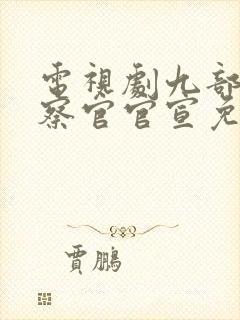 電視劇九部
察官官宣免
賈鵬